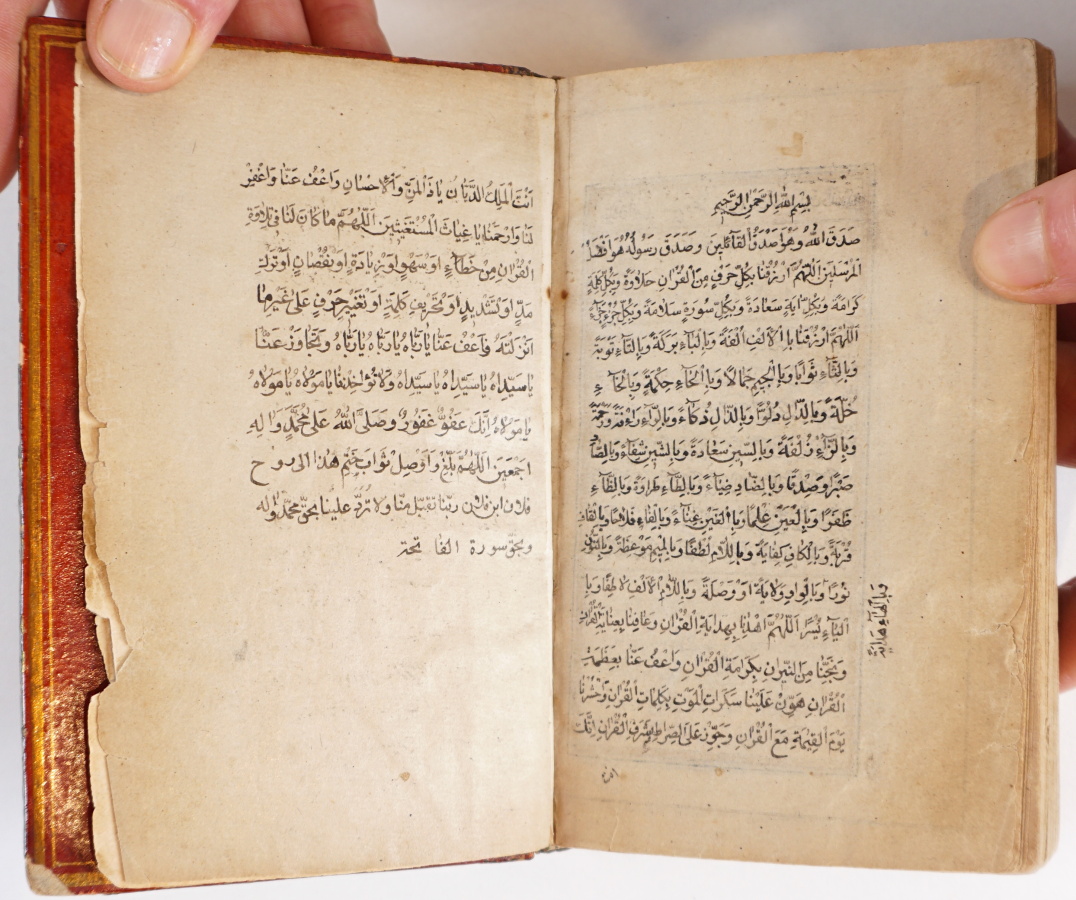 بسم الله الرحمن الرحيم
صدق الله وهو اصدق القائلين وصدق رسوله هو افضل
المرسلين اللهم ارزقنا بكل حرف من القران حلاوة وبكل كلمة
كرامة وبكل اية سعادة وبكل سورة سلامة وبكل جزء جزاء
اللهم ارزقنا با الالف الفة وبالباء بركة وبالتاء توبة
وبالثاء ثوابا وبا الجيم جمالا وبا الحاء حكمة وبالخاء
خلة وبالدال دنوا وبالذال ذكاء وبالراء رافة ورحمة
وبالزاء زلفة وبالسين سعادة وبالشين شفاء وبالصاد
صبرا وصدقا وبالضاد ضياء وبالطاء طراوة وبالظاء
ظفرا وبالعين علما وبا الغين غناء وبالفاء فلاحا وبالقاف
قربة وبالكاف كفاية وباللام لطفا وبالميم موعظة وبالنون
نورا وبالواو ولاية او وصلة وباللام الالف لا طفا وبا
الياء يسرا اللهم اهدنا بهداية القران وعافنا بعناية القران
ونجنا من النيران بكرامة القران واعف عنا بعظمة
القران هون علينا سكرات الموت بكلمات القران واحشرنا
يوم القيمة مع القران وجوزنا على الصراط بشرف القران انك
وبا الهاء هداية
انت
انت الملك الديان يا ذا المن والاحسان واعف عنا واغفر
لنا وارحمنا يا غياث المستغيثين اللهم ما كان لنا في تلاوة
القران من خطاء او سهو او زيادة او نقصان او ترك
مد او تشديد او تحريف كلمة او تغيير حرف على غير ما
انزلته فاعف عنا يا رباه يا رباه يا رباه وتجاوز عنا
يا سيداه يا سيداه يا سيداه ولا تؤاخذنا يا مولاه يا مولاه
يا مولاه انك عفو غفور وصلى الله على محمد واله
اجمعين اللهم بلغ واوصل ثواب ختم هذا الى روح
فلان ابن فلان ربنا تقبل منا ولا ترد علينا بحق محمد واله
وبحق سورة الفاتحة